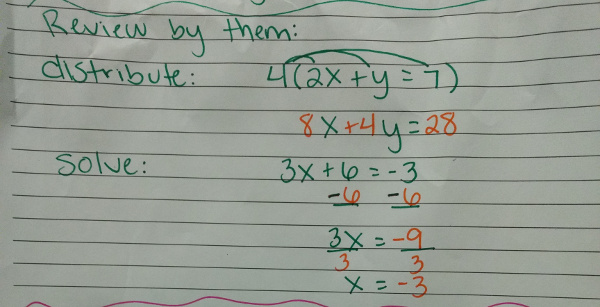 Review by them:
distribute: 4(2x + y = 7)
8x+4y=28
Solve: 3x + 6 = -3
-6 -6
3x = -9
3 3
x = -3